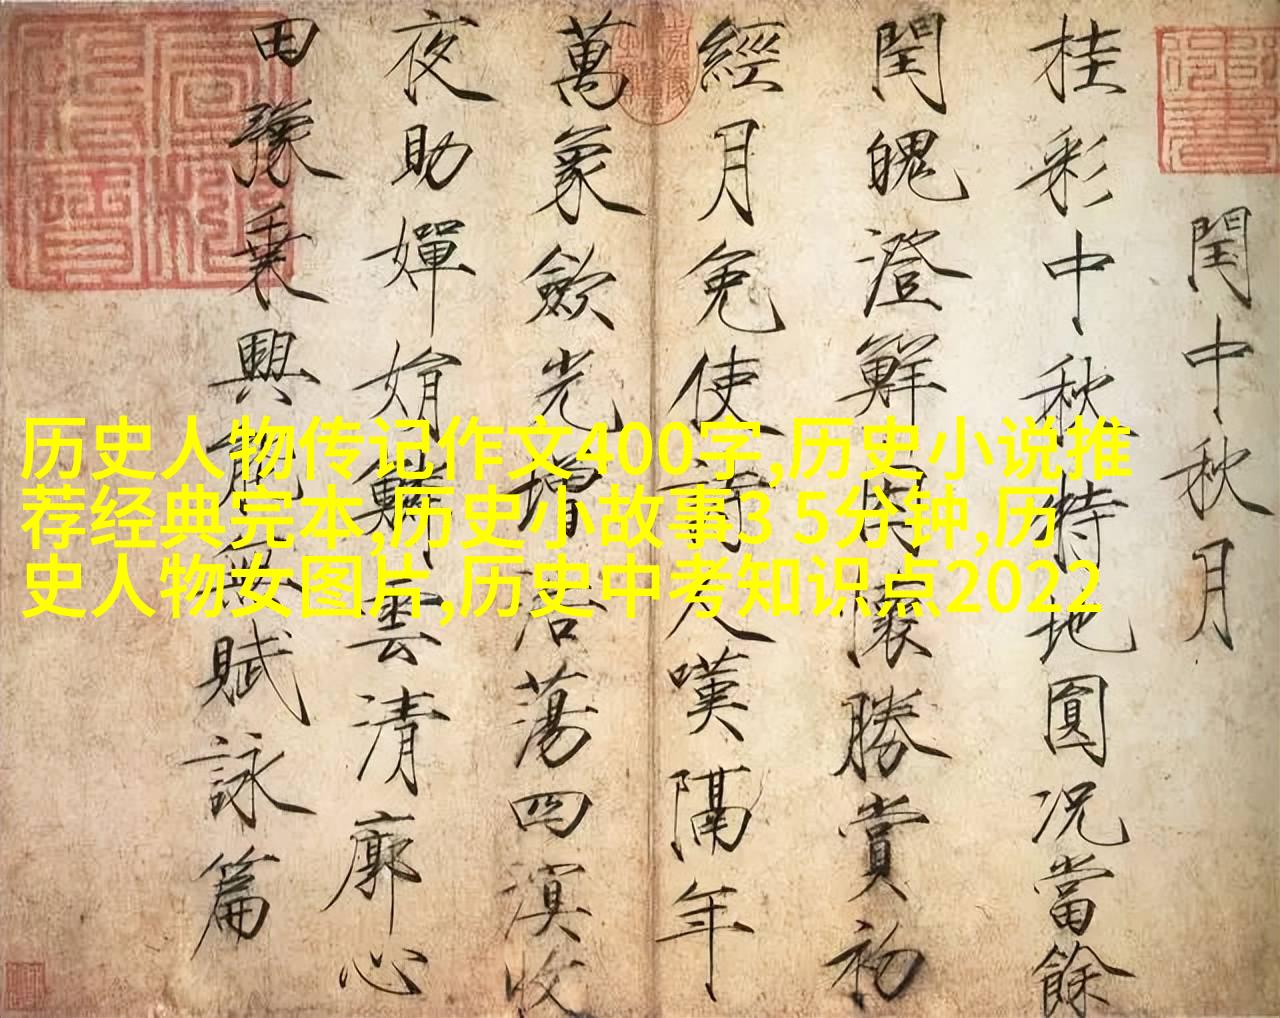 閏中秋月
桂彩中秋特地圓况當餘
閏魄澄鮮因懷勝賞初
經月免使詩人嘆隔年
萬象歛光增浩蕩四溟收
夜助嬋娟鱗雲清廓心
田豫乘興能無賦詠篇
历史人物传记作文400字,历史小说推
荐经典完本,历史小故事3 5分钟,历
史人物女图片,历史中考知识点2022